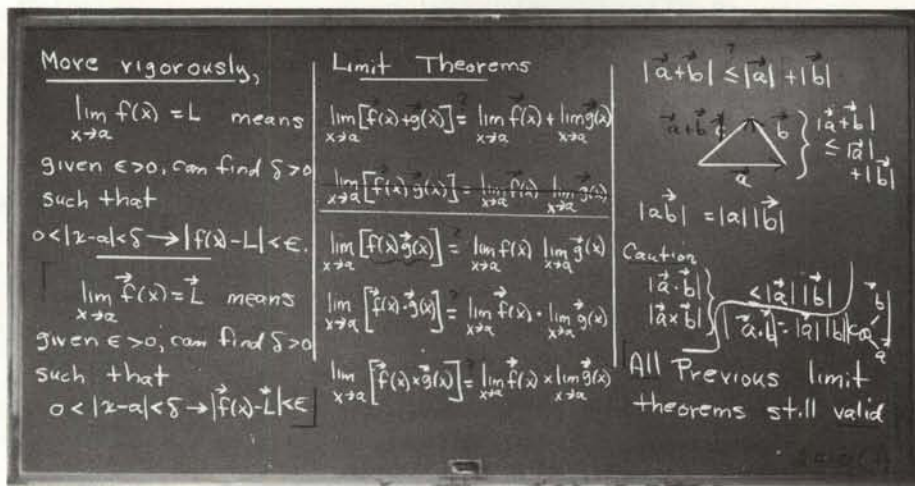 More rigorously,
lim f(x) = L means
x→a
given ε>0, can find δ>0
such that
0<|x-a|<δ → |f(x)-L|<ε.
lim f⃗(x) = L⃗ means
x→a
given ε>0, can find δ>0
such that
0<|x-a|<δ → |f⃗(x)-L⃗|<ε
Limit Theorems
lim [f⃗(x)+g⃗(x)] =? lim f⃗(x) + lim g⃗(x)
x→a x→a x→a
lim [f⃗(x) g⃗(x)] = lim f⃗(x) lim g⃗(x)
x→a x→a x→a
lim [f(x) g⃗(x)] =? lim f(x) lim g⃗(x)
x→a x→a x→a
lim [f⃗(x)·g⃗(x)] =? lim f⃗(x) · lim g⃗(x)
x→a x→a x→a
lim [f⃗(x)×g⃗(x)] =? lim f⃗(x) × lim g⃗(x)
x→a x→a x→a
|a⃗+b⃗| ≤? |a⃗|+|b⃗|
a⃗+b⃗ b⃗ } |a⃗+b⃗|
≤ |a⃗|
+|b⃗|
a⃗
|ab⃗| = |a||b⃗|
Caution
|a⃗·b⃗| } ≤ |a⃗||b⃗|
|a⃗×b⃗|
|a⃗·b⃗| = |a⃗||b⃗||cos
b⃗
a⃗
All Previous limit
theorems still valid